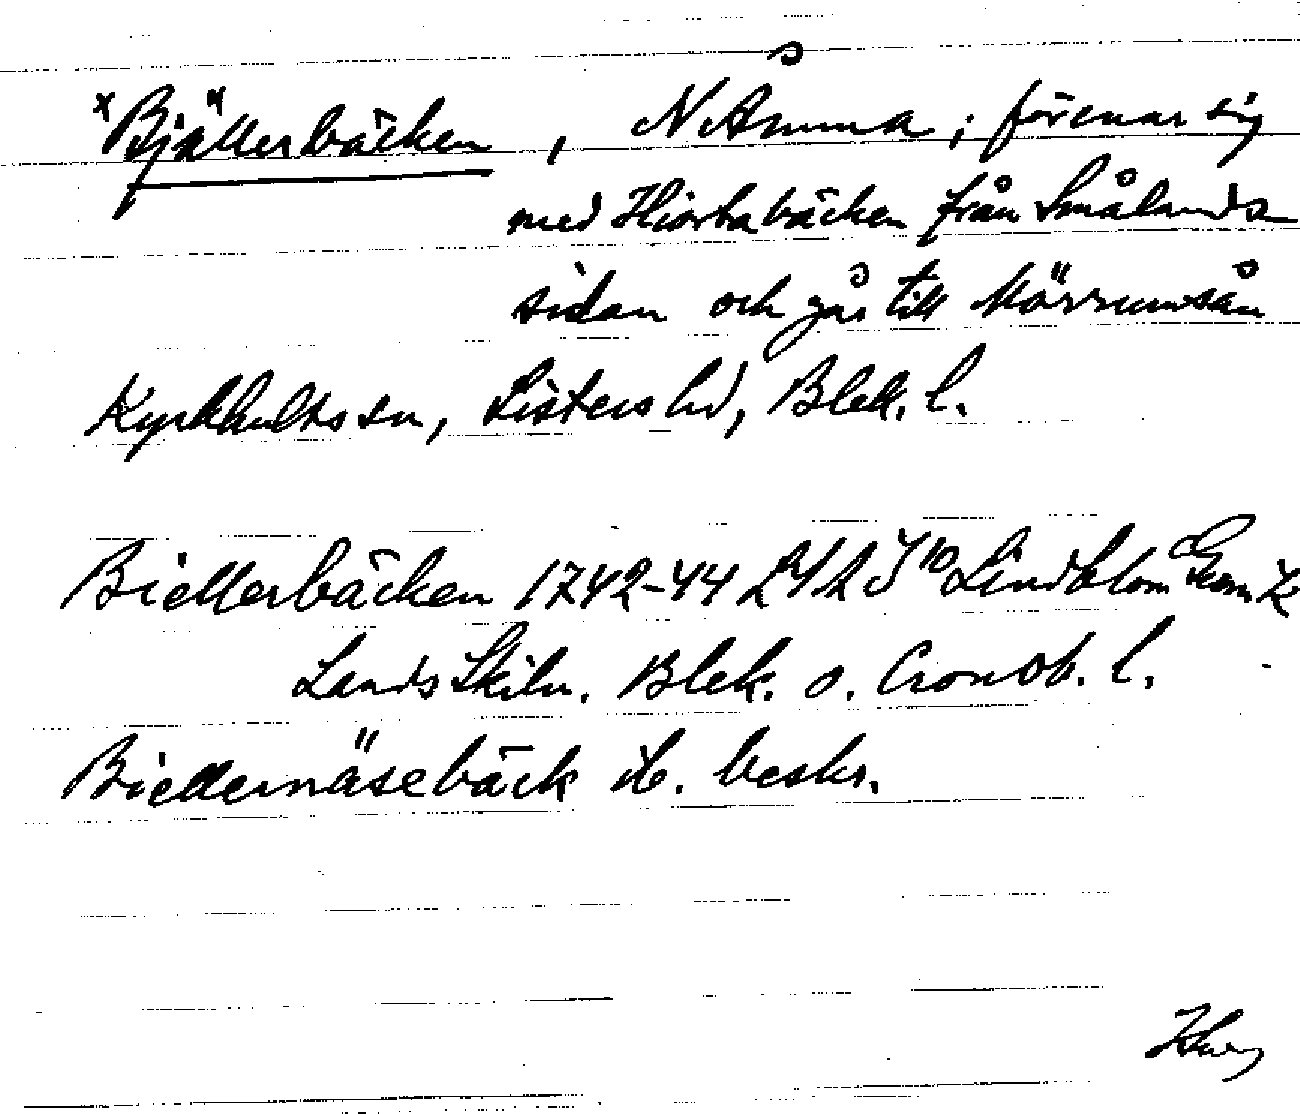 x Bjällerbäcken, N Åmma; förenar sig
med Hiortabäcken från Smålands
sidan och går till Mörrumsån
Kyrkhults sn, Listers hd, Blek. l.
Biellerbäcken 1742-44 Lindblom
Lands Skiln. Blek. o. Cronob. l.
Biellernäsebäck ib. beskr.